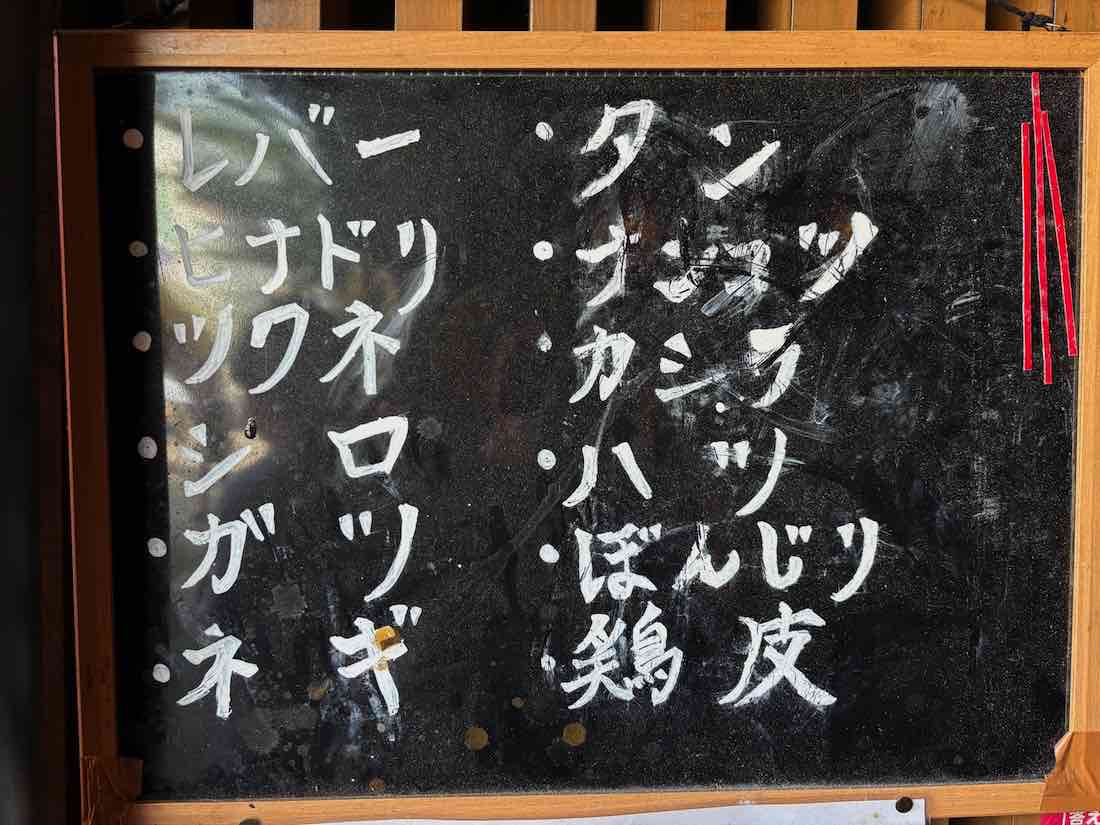 ・レバー
・ヒナドリ
・ツクネ
・シロ
・ガツ
・ネギ
・タン
・ナンコツ
・カシラ
・ハツ
・ぼんじり
・鶏皮
答え